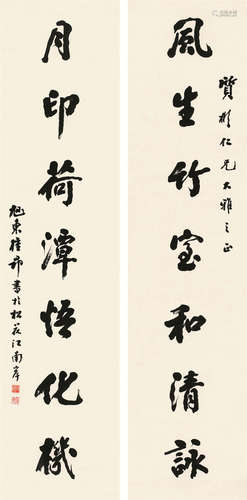 風生竹室和清詠
質彬仁兄大雅之正
月印荷潭悟化機
旭東桂節書於松花江南岸